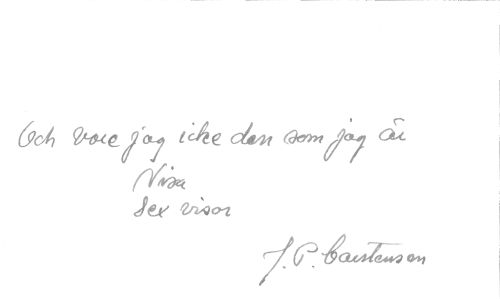 Och vore jag icke den som jag är
Visa
Sex visor
J. P. Carstensen